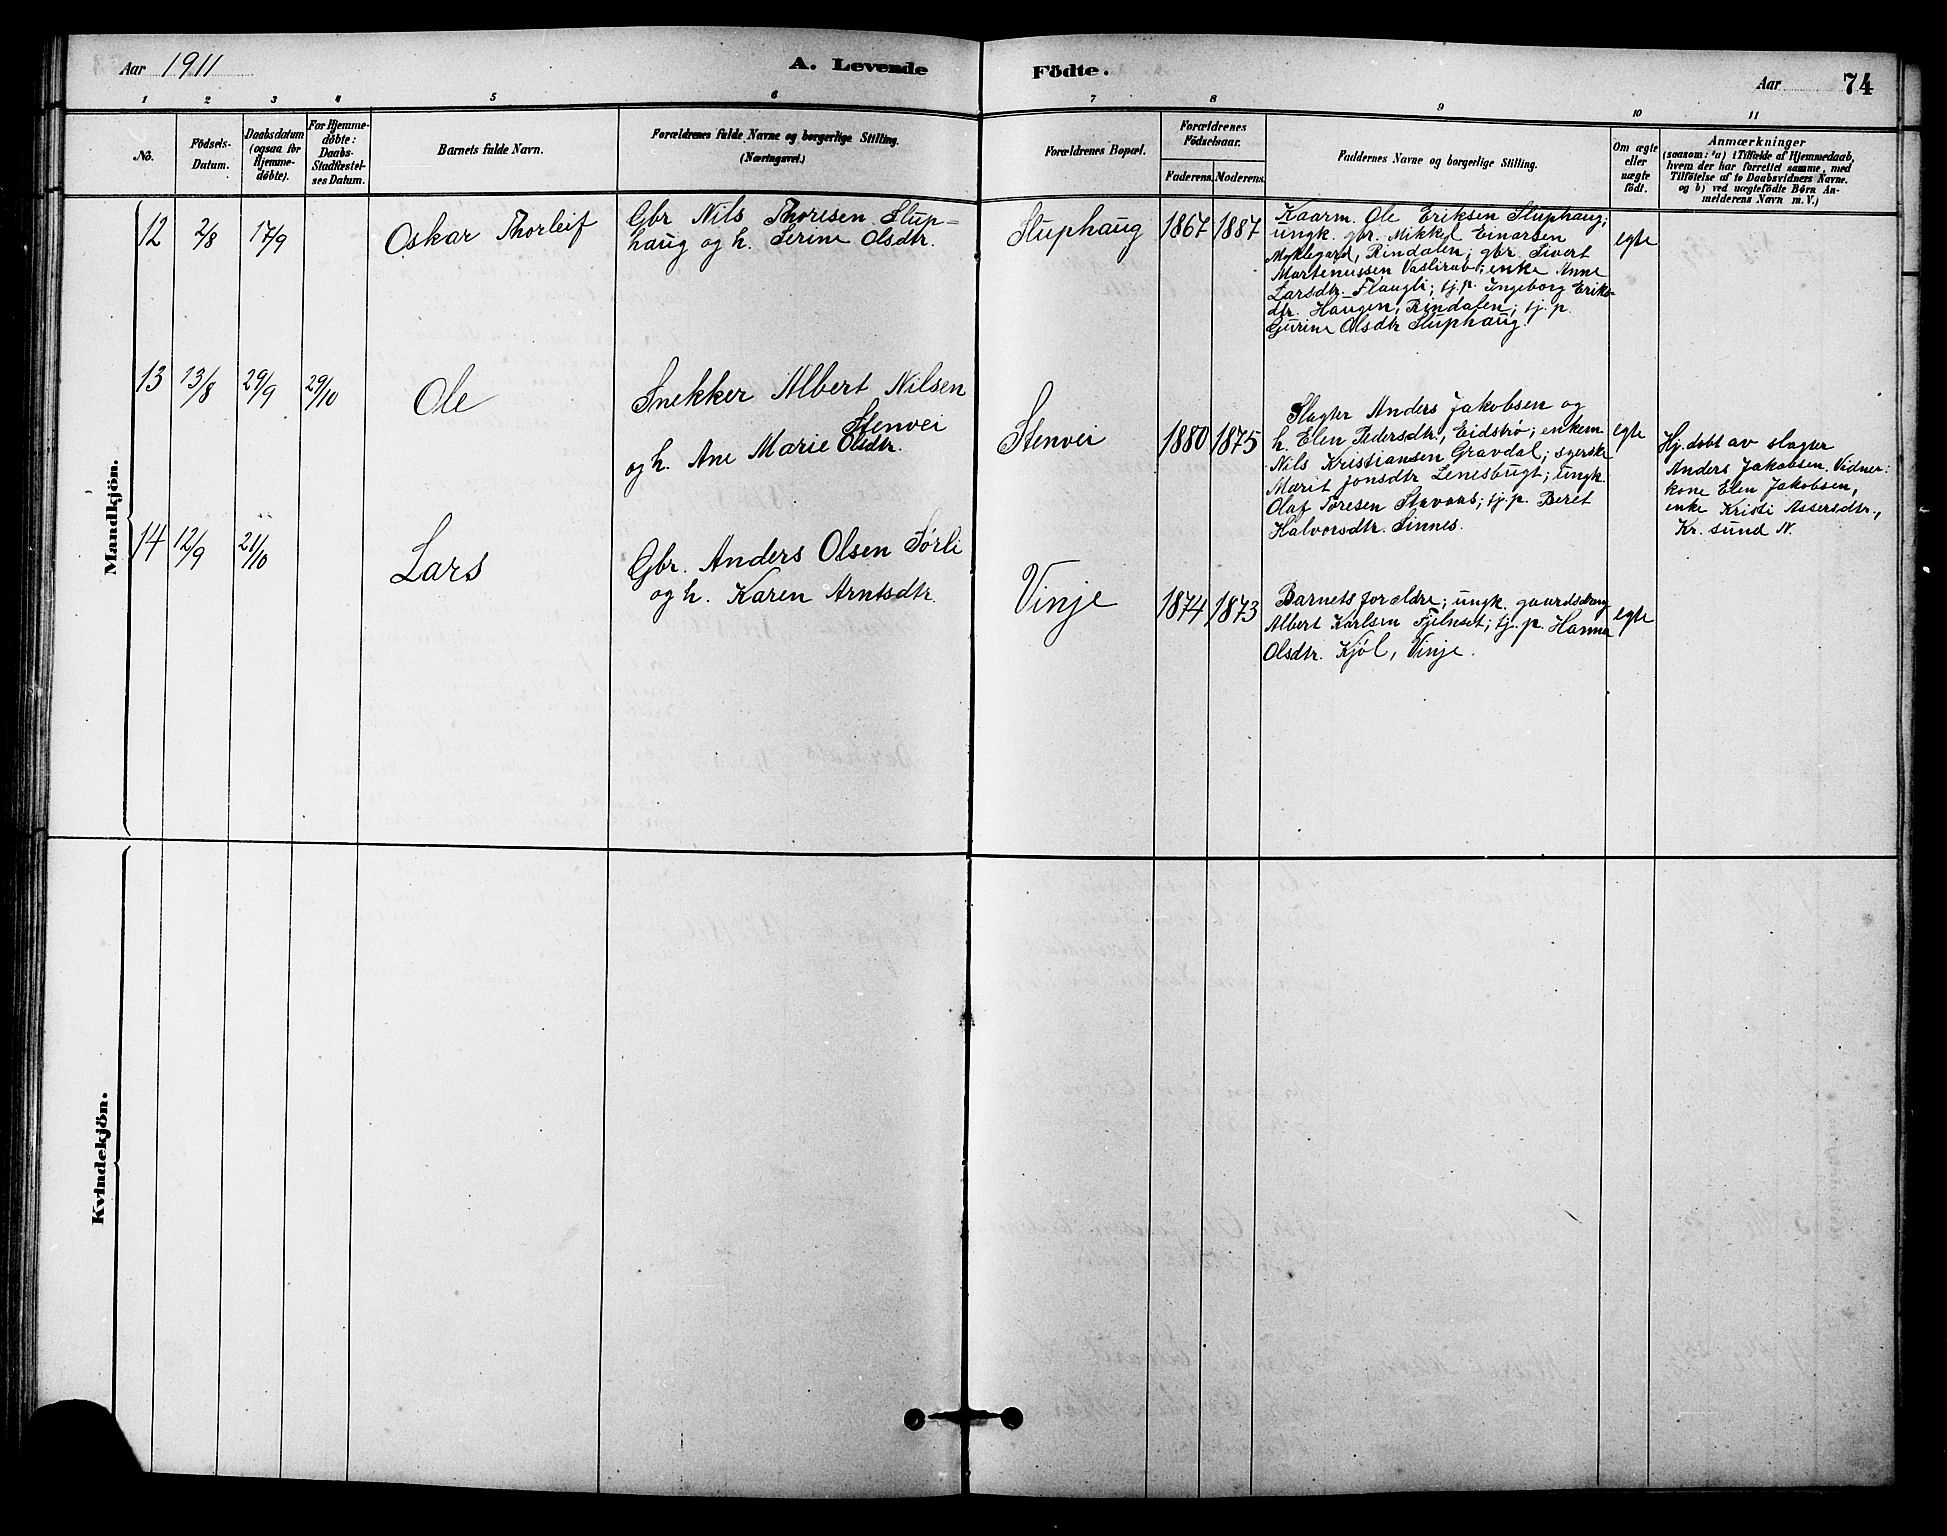 Aar 1911
A. Levende
Födte.
Aar
74
1 2 3 4 5 6 7 8 9 10 11
No.
Födsels-
Datum.
Daabsdatum
(ogsaa for
Hjemme-
döbte).
For Hjemme-
döbte:
Daabs-
Stadfæstel-
ses Datum.
Barnets fulde Navn.
Forældrenes fulde Navne og borgerlige Stilling.
(Næringsvei.)
Forældrenes Bopæl.
Forældrenes
Födselsaar.
Faderens. Moderens.
Faddernes Navne og borgerlige Stilling.
Om ægte
eller
uægte
födt.
Anmærkninger
(saasom: a) i Tilfælde af Hjemmedaab,
hvem der har forrettet samme, med
Tilföielse af to Daabsvidners Navne.
og b) ved uægtefödte Börn An-
melderens Navn m. V.)
Mandkjön.
12
2/8
17/9
Oskar Thorleif
Gbr Nils Thoresen Slup-
haug og h. Serine Olsdtr.
Sluphaug
1867
1887
Kaarm. Ole Eriksen Sluphaug;
ungk. gbr. Mikkel Einarsen
Myklegard, Rindalen; gbr. Sivert
Martenussen; enke Anne
Larsdtr. Flaugli; tj.p. Ingeborg Eriks-
dtr. Haugen, Rindalen; tj. p.
Gurine Olsdtr Sluphaug.
egte
13
13/8
29/9
29/10
Ole
Snekker Albert Nilsen
Stenvei
og h. Ane Marie Olsdtr.
Stenvei
1880
1875
Slagter Anders Jakobsen og
h. Elen Pedersdtr., Eidstrø; enkem.
Nils Kristiansen Gravdal; syerske
Marit Jonsdtr Lenesbugt; ungk.
Olaf Toresen; tj. p. Beret
Halvorsdtr. Sinnes.
egte
Hj. døbt av slagter
Anders Jakobsen. Vidner:
kone Elen Jakobsen,
enke Kristi Assersdtr.,
Kr. sund N.
14
12/9
21/10
Lars
Gbr. Anders Olsen Sørli
og h. Karen Arntsdtr.
Vinje
1874
1873
Barnets forældre; ungk. gaardsdreng
Albert Karlsen Fjelnset; tj. p. Hanna
Olsdtr. Kjøl, Vinje.
egte
Kvindekjön.